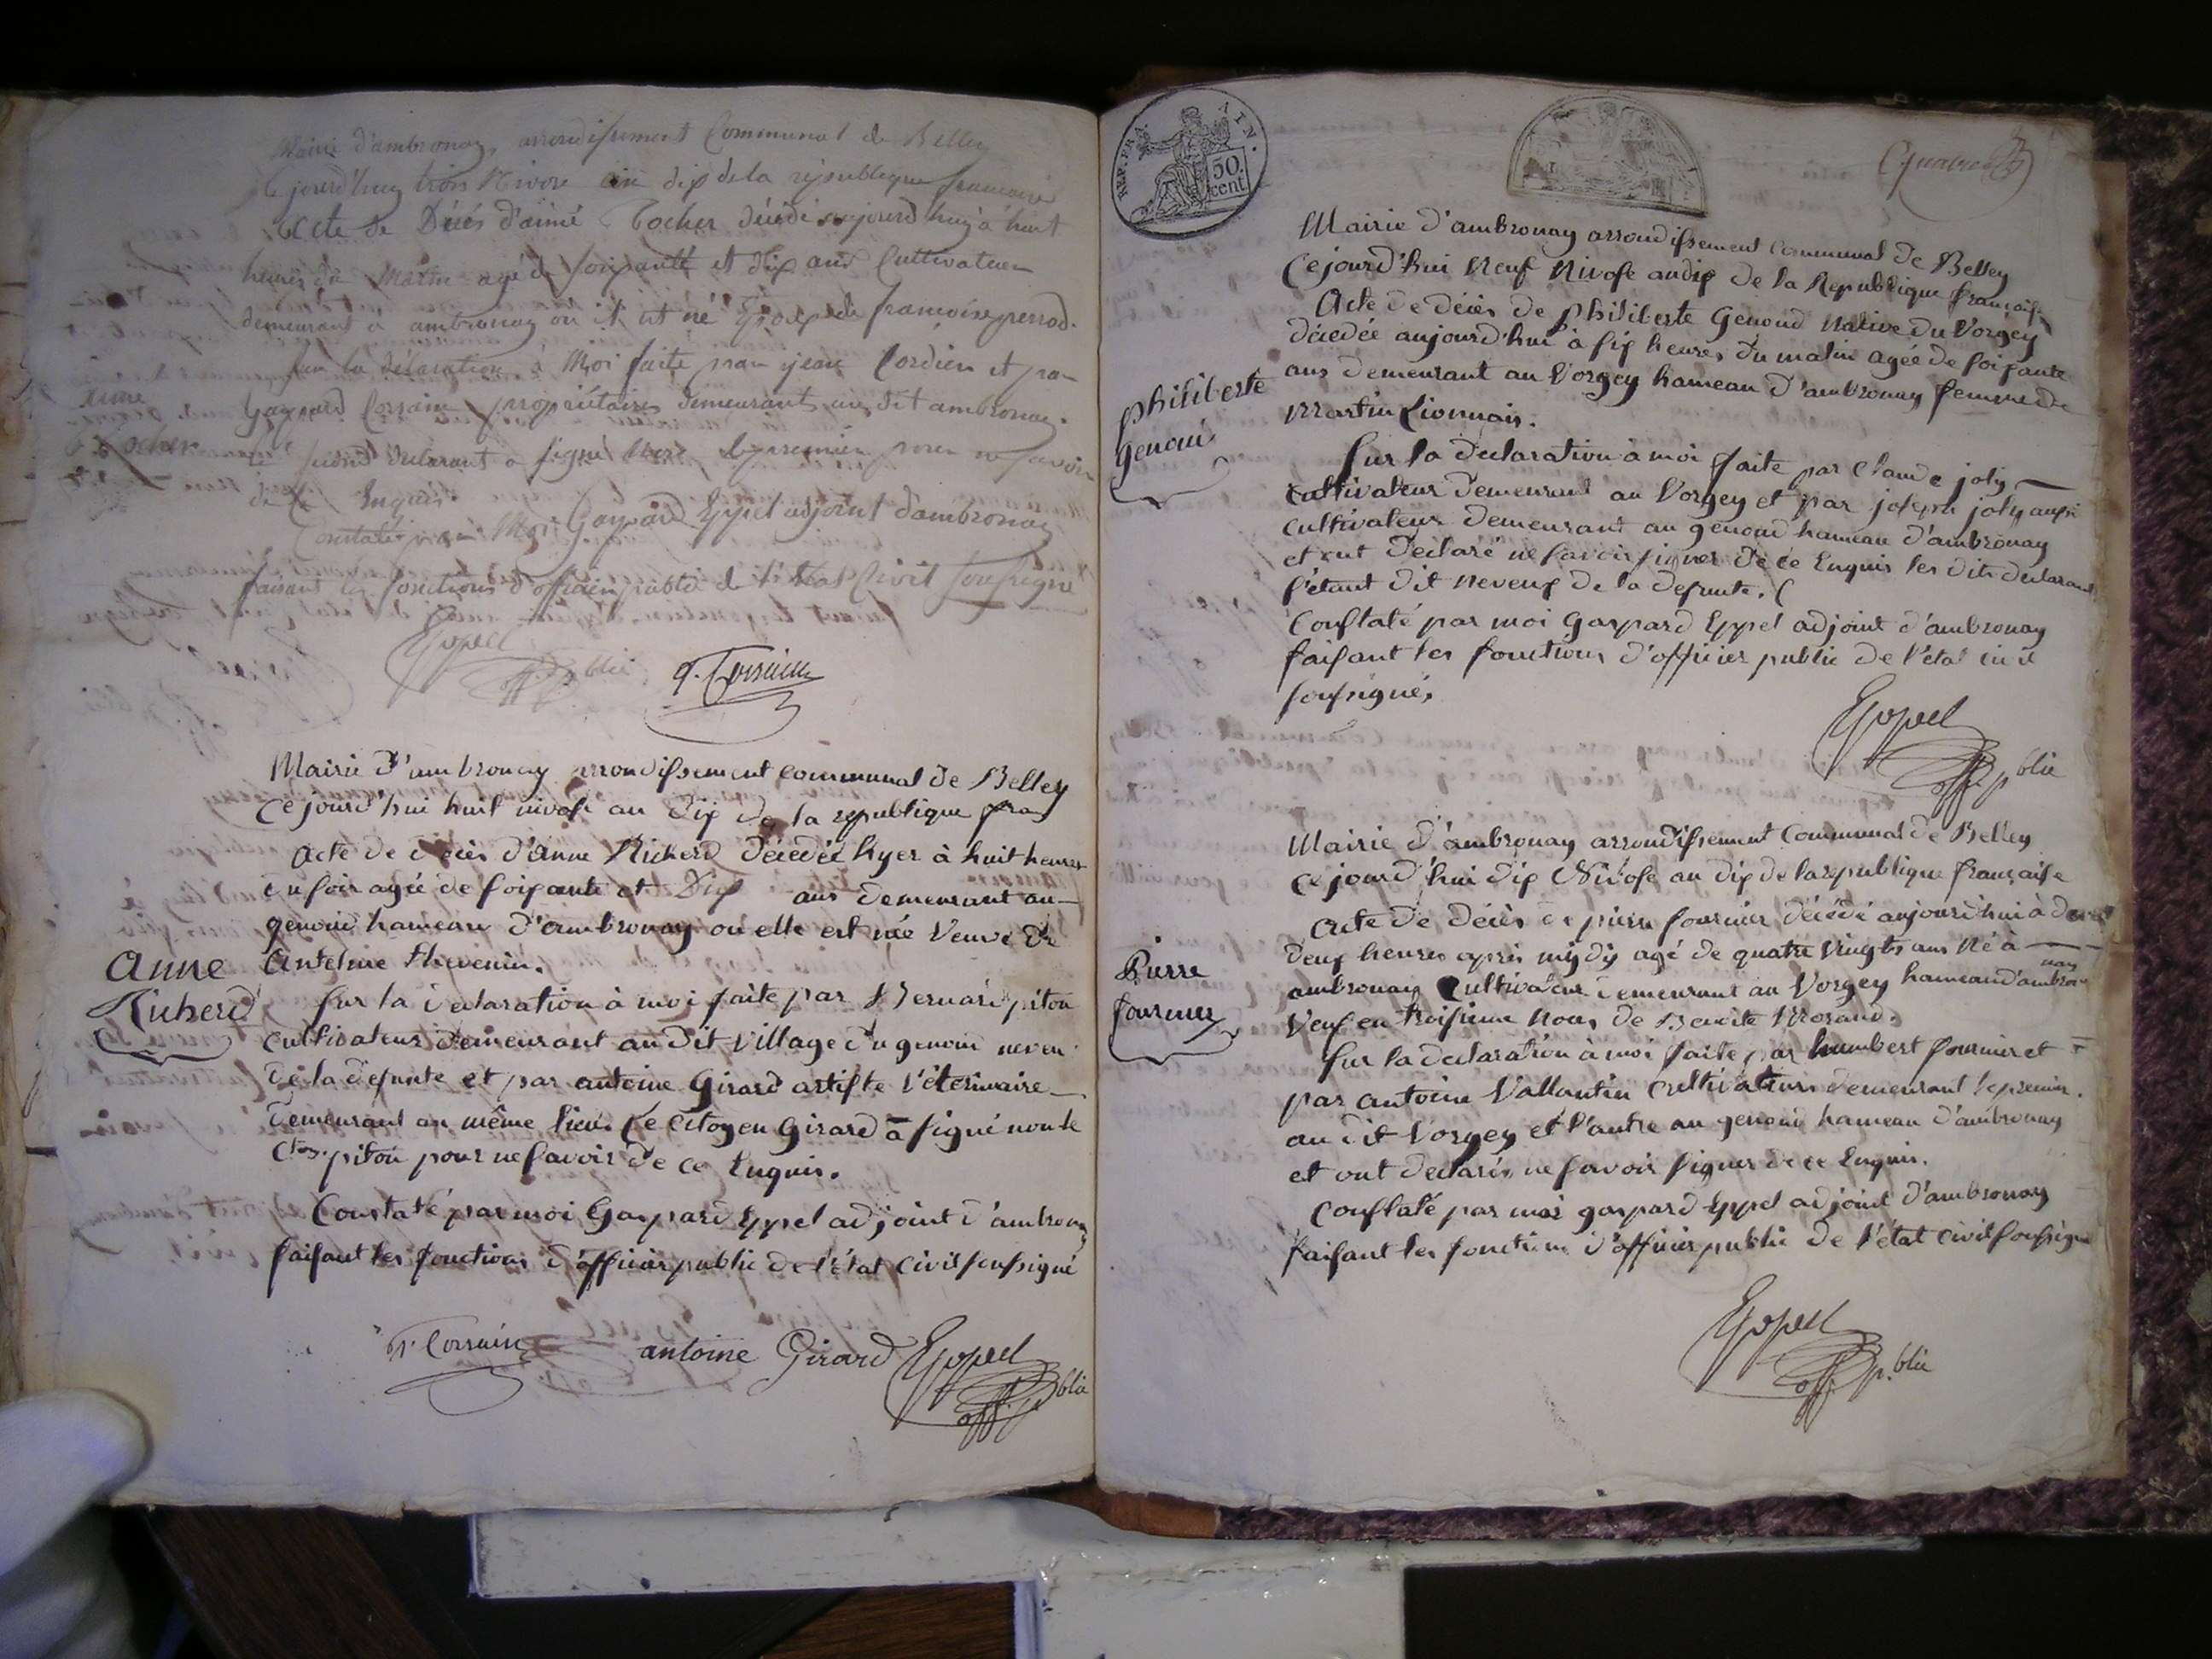 Mairie d'ambronay, arrondissement Communal de Belley
Ce jourd'huy trois Nivose an dix de la republique francaise
Acte de Décés d'aimé Tocher décédé aujourd'huy à huit
heures du Matin agé de soixante et dix ans Cultivateur
demeurant à ambronay ou il est né Epoux de francoise perrod.
Sur la déclaration à Moi faite par jean Cordier et par
Gaspard Corsain propriétaires demeurants au dit ambronay.
le second déclarant a signé non le premier pour ne savoir
de ce Enquis
Constaté par Moi Gaspard Eppel adjoint d'ambronay
faisant les fonctions d'officier public de l'état Civil soussigné
aimé
Tocher
Eppel
off. p. blic
g. Corsain
Mairie d'ambronay arrondissement communal de Belley
Ce jourd'hui huit nivose an dix de la republique fra
Acte de décès d'Anne Richerd décedée hyer à huit heures
du soir agée de soixante et Dix ans demeurant au
genoud hameau d'ambronay où elle est née Veuve de
Antelme thevenin.
Anne
Richerd
sur la declaration à moi faite par Bernard piton
cultivateur demeurant au dit village du genoud neveu
de la defunte et par antoine Girard artiste véterinaire
demeurant au même lieu. Le citoyen Girard a signé non le
Cton. piton pour ne savoir de ce Enquis.
Constaté par moi Gaspard Eppel adjoint d'ambronay
faisant les fonctions d'officier public de l'état civil soussigné
g. Corsain
antoine Girard
Eppel
off. p. blic
REP. FRA.
AIN.
50
cent
Mairie d'ambronay arrondissement communal de Belley
Cejourd'hui neuf Nivose an dix de la Republique française
Acte de décès de philiberte Genoud native du Vorgey
décedée aujourd'hui à six heures du matin agée de soixante
ans demeurant au Vorgey hameau d'ambronay femme de
Martin Lionnais.
philiberte
genoud
sur la declaration à moi faite par Claude joly
cultivateur demeurant au Vorgey et par joseph joly aussi
cultivateur demeurant au genoud hameau d'ambronay
et ont declaré ne savoir signer de ce Enquis les dits declarant
s'étant dit neveux de la defunte. (
Constaté par moi Gaspard Eppel adjoint d'ambronay
faisant les fonctions d'officier public de l'état civil
soussigné,
Eppel
off. p. blic
Mairie d'ambronay arrondissement communal de Belley
ce jourd'hui dix Nivose an dix de la republique française
Acte de décès de pierre fournier décédé aujourd'hui à
deux heures après mydy agé de quatre vingts ans né à
ambronay Cultivateur demeurant au Vorgey hameau d'ambronay
Veuf en troisieme noces de Benoite Morand.
Pierre
fournier
sur la declaration à moi faite par humbert fournier et
par antoine Vallantin cultivateurs demeurant le premier
au dit Vorgey et l'autre au genoud hameau d'ambronay
et ont declarés ne savoir signer de ce Enquis.
Constaté par moi gaspard Eppel adjoint d'ambronay
faisant les fonctions d'officier public de l'état civil soussigné
Eppel
off. p. blic